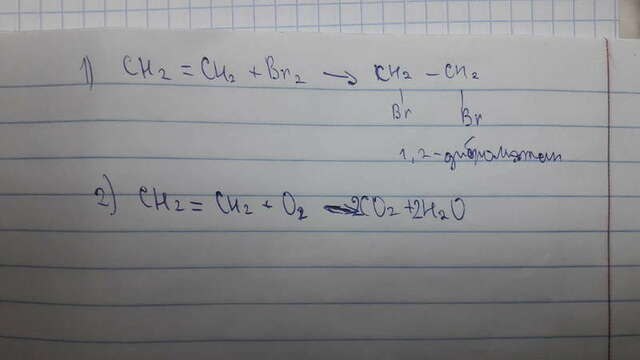 1) CH2 = CH2 + Br2 → CH2 - CH2
Br Br
1,2-дибромэтан
2) CH2 = CH2 + O2 → 2CO2 + 2H2O